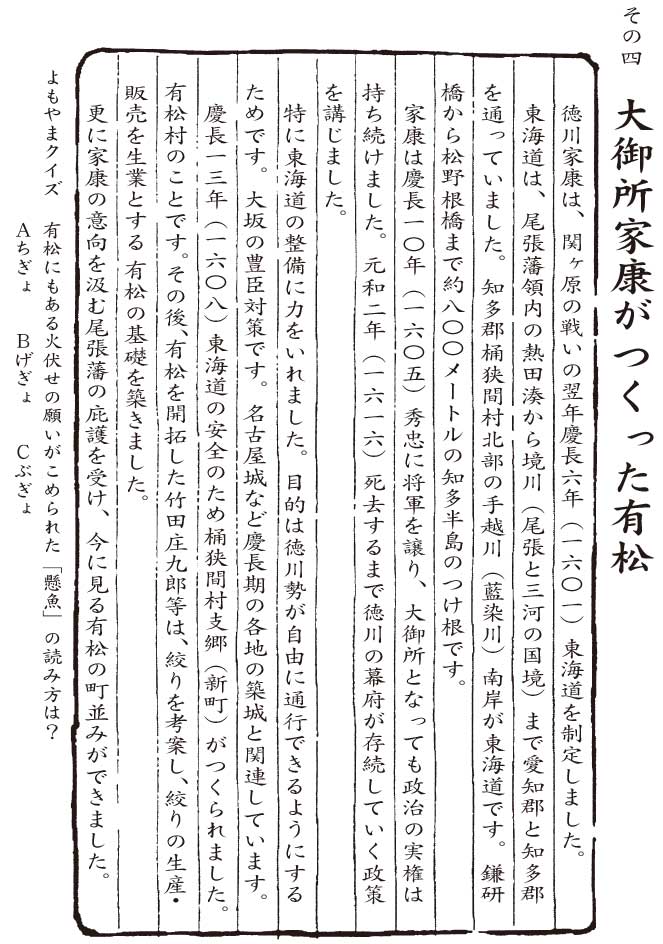 その四　大御所家康がつくった有松
徳川家康は、関ヶ原の戦いの翌年慶長六年（一六〇一）東海道を制定しました。
東海道は、尾張藩領内の熱田湊から境川（尾張と三河の国境）まで愛知郡と知多郡
を通っていました。知多郡桶狭間村北部の手越川（藍染川）南岸が東海道です。鎌研
橋から松野根橋まで約八〇〇メートルの知多半島のつけ根です。
家康は慶長一〇年（一六〇五）秀忠に将軍を譲り、大御所となっても政治の実権は
持ち続けました。元和二年（一六一六）死去するまで徳川の幕府が存続していく政策
を講じました。
特に東海道の整備に力をいれました。目的は徳川勢が自由に通行できるようにする
ためです。大坂の豊臣対策です。名古屋城など慶長期の各地の築城と関連しています。
慶長一三年（一六〇八）東海道の安全のため桶狭間村支郷（新町）がつくられました。
有松村のことです。その後、有松を開拓した竹田庄九郎等は、絞りを考案し、絞りの生産・
販売を生業とする有松の基礎を築きました。
更に家康の意向を汲む尾張藩の庇護を受け、今に見る有松の町並みができました。
よもやまクイズ　有松にもある火伏せの願いがこめられた「懸魚」の読み方は？
Aちぎょ　Bげぎょ　Cぶぎょ